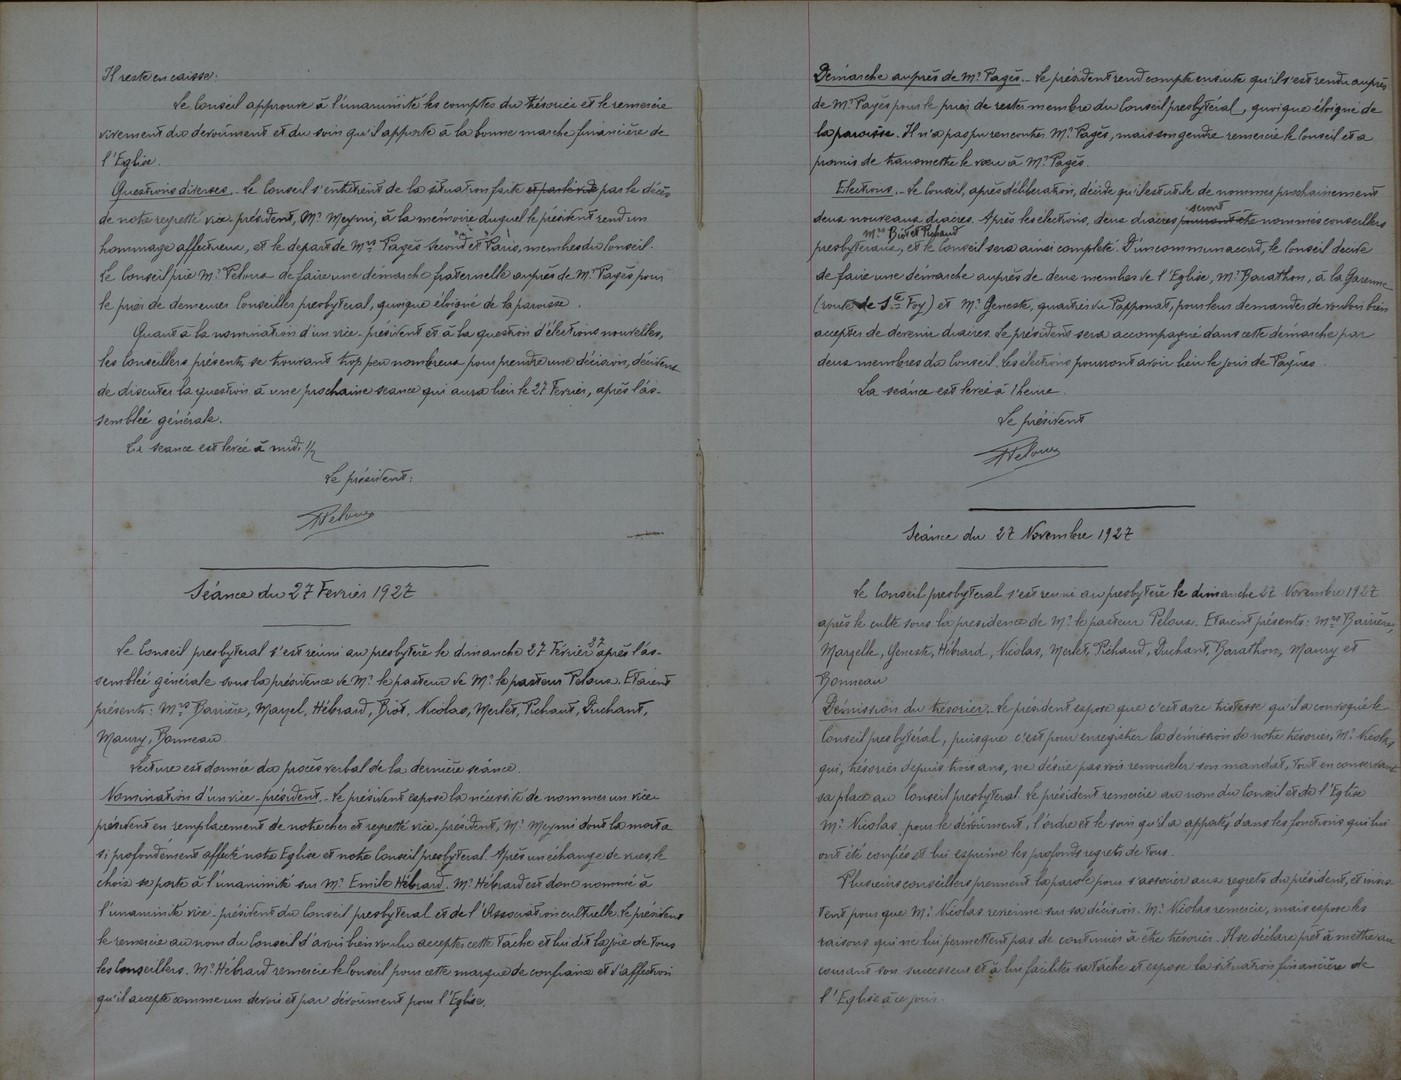 Il reste en caisse:
Le Conseil approuve à l'unanimité les comptes du trésorier et le remercie
vivement du dévoûment et du soin qu'il apporte à la bonne marche financière de
l'Eglise.
Questions diverses._ Le Conseil s'entretient de la situation faite par le décès
de notre regretté vice-président, Mr Meyni, à la mémoire duquel le président rend un
hommage affectueux, et le départ de Mrs Pagès second et Paris, membres du Conseil.
Le Conseil prie Mr Peloux de faire une démarche fraternelle auprès de Mr Pagès pour
le prier de demeurer Conseiller presbytéral, quoique éloigné de la paroisse.
Quant à la nomination d'un vice-président et à la question d'élections nouvelles,
les Conseillers présents se trouvant trop peu nombreux pour prendre une décision, décident
de discuter la question à une prochaine séance qui aura lieu le 27 Fevrier, après l'as-
semblée générale.
La séance est levée à midi 1/2
Le président:
Peloux
Séance du 27 Fevrier 1927
Le Conseil presbytéral s'est réuni au presbytère le dimanche 27 Février 27 après l'as-
semblée générale sous la présidence de Mr le pasteur de Mr le pasteur Peloux. Etaient
présents: Mrs Barrière, Marzel, Hébrard, Biot, Nicolas, Merlet, Pichaut, Duchant,
Maury, Bonneau.
Lecture est donnée du procès verbal de la dernière séance.
Nomination d'un vice-président._ Le président expose la nécessité de nommer un vice-
président en remplacement de notre cher et regretté vice-président, Mr Meyni dont la mort a
si profondément affecté notre Eglise et notre Conseil presbytéral. Après un échange de vues, le
choix se porte à l'unanimité sur Mr Emile Hébrard. Mr Hébrard est donc nommé à
l'unanimité vice-président du Conseil presbytéral et de l'Association cultuelle. Le président
le remercie au nom du Conseil d'avoir bien voulu accepter cette tâche et lui dit la joie de tous
les Conseillers. Mr Hébrard remercie le Conseil pour cette marque de confiance et d'affection
qu'il accepte comme un devoir et par dévoûment pour l'Eglise.
Démarche auprès de Mr Pagès._ Le président rend compte ensuite qu'il s'est rendu auprès
de Mr Pagès pour le prier de rester membre du Conseil presbytéral, quoique éloigné de
la paroisse. Il n'a pas pu rencontrer Mr Pagès, mais son gendre remercie le Conseil et a
promis de transmettre le vœu à Mr Pagès.
Elections._ Le Conseil, après délibération, décide qu'il est utile de nommer prochainement
deux nouveaux diacres. Après les élections, deux diacres seront nommés conseillers
Mrs Biot et Pichaud
presbytéraux, et le Conseil sera ainsi complété. D'un commun accord, le Conseil décide
de faire une démarche auprès de deux membres de l'Eglise, Mr Barathon, à la Garenne
(route de Ste Foy) et Mr Geneste, quartier du Papponat, pour leur demander de vouloir bien
accepter de devenir diacres. Le président sera accompagné dans cette démarche par
deux membres du Conseil. Les élections pourront avoir lieu le jour de Pâques.
La séance est levée à 1 heure.
Le président
Peloux
Séance du 27 Novembre 1927
Le Conseil presbytéral s'est réuni au presbytère le dimanche 27 Novembre 1927
après le culte sous la présidence de Mr le pasteur Peloux. Etaient présents: Mrs Barrière,
Marzelle, Geneste, Hébrard, Nicolas, Merlet, Pichaud, Duchant, Barathon, Maury et
Bonneau
Démission du trésorier._ Le président expose que c'est avec tristesse qu'il a convoqué le
Conseil presbytéral, puisque c'est pour enregistrer la démission de notre trésorier, Mr Nicolas
qui, trésorier depuis trois ans, ne désire pas voir renouveler son mandat, tout en conservant
sa place au Conseil presbytéral. Le président remercie au nom du Conseil et de l'Eglise
Mr Nicolas, pour le dévoûment, l'ordre et le soin qu'il a apportés dans les fonctions qui lui
ont été confiées et lui exprime les profonds regrets de tous.
Plusieurs conseillers prennent la parole pour s'associer aux regrets du président, et insis-
tent pour que Mr Nicolas revienne sur sa décision. Mr Nicolas remercie, mais expose les
raisons qui ne lui permettent pas de continuer à être trésorier. Il se déclare prêt à mettre au
courant son successeur et à lui faciliter sa tâche et expose la situation financière de
l'Eglise à ce jour.